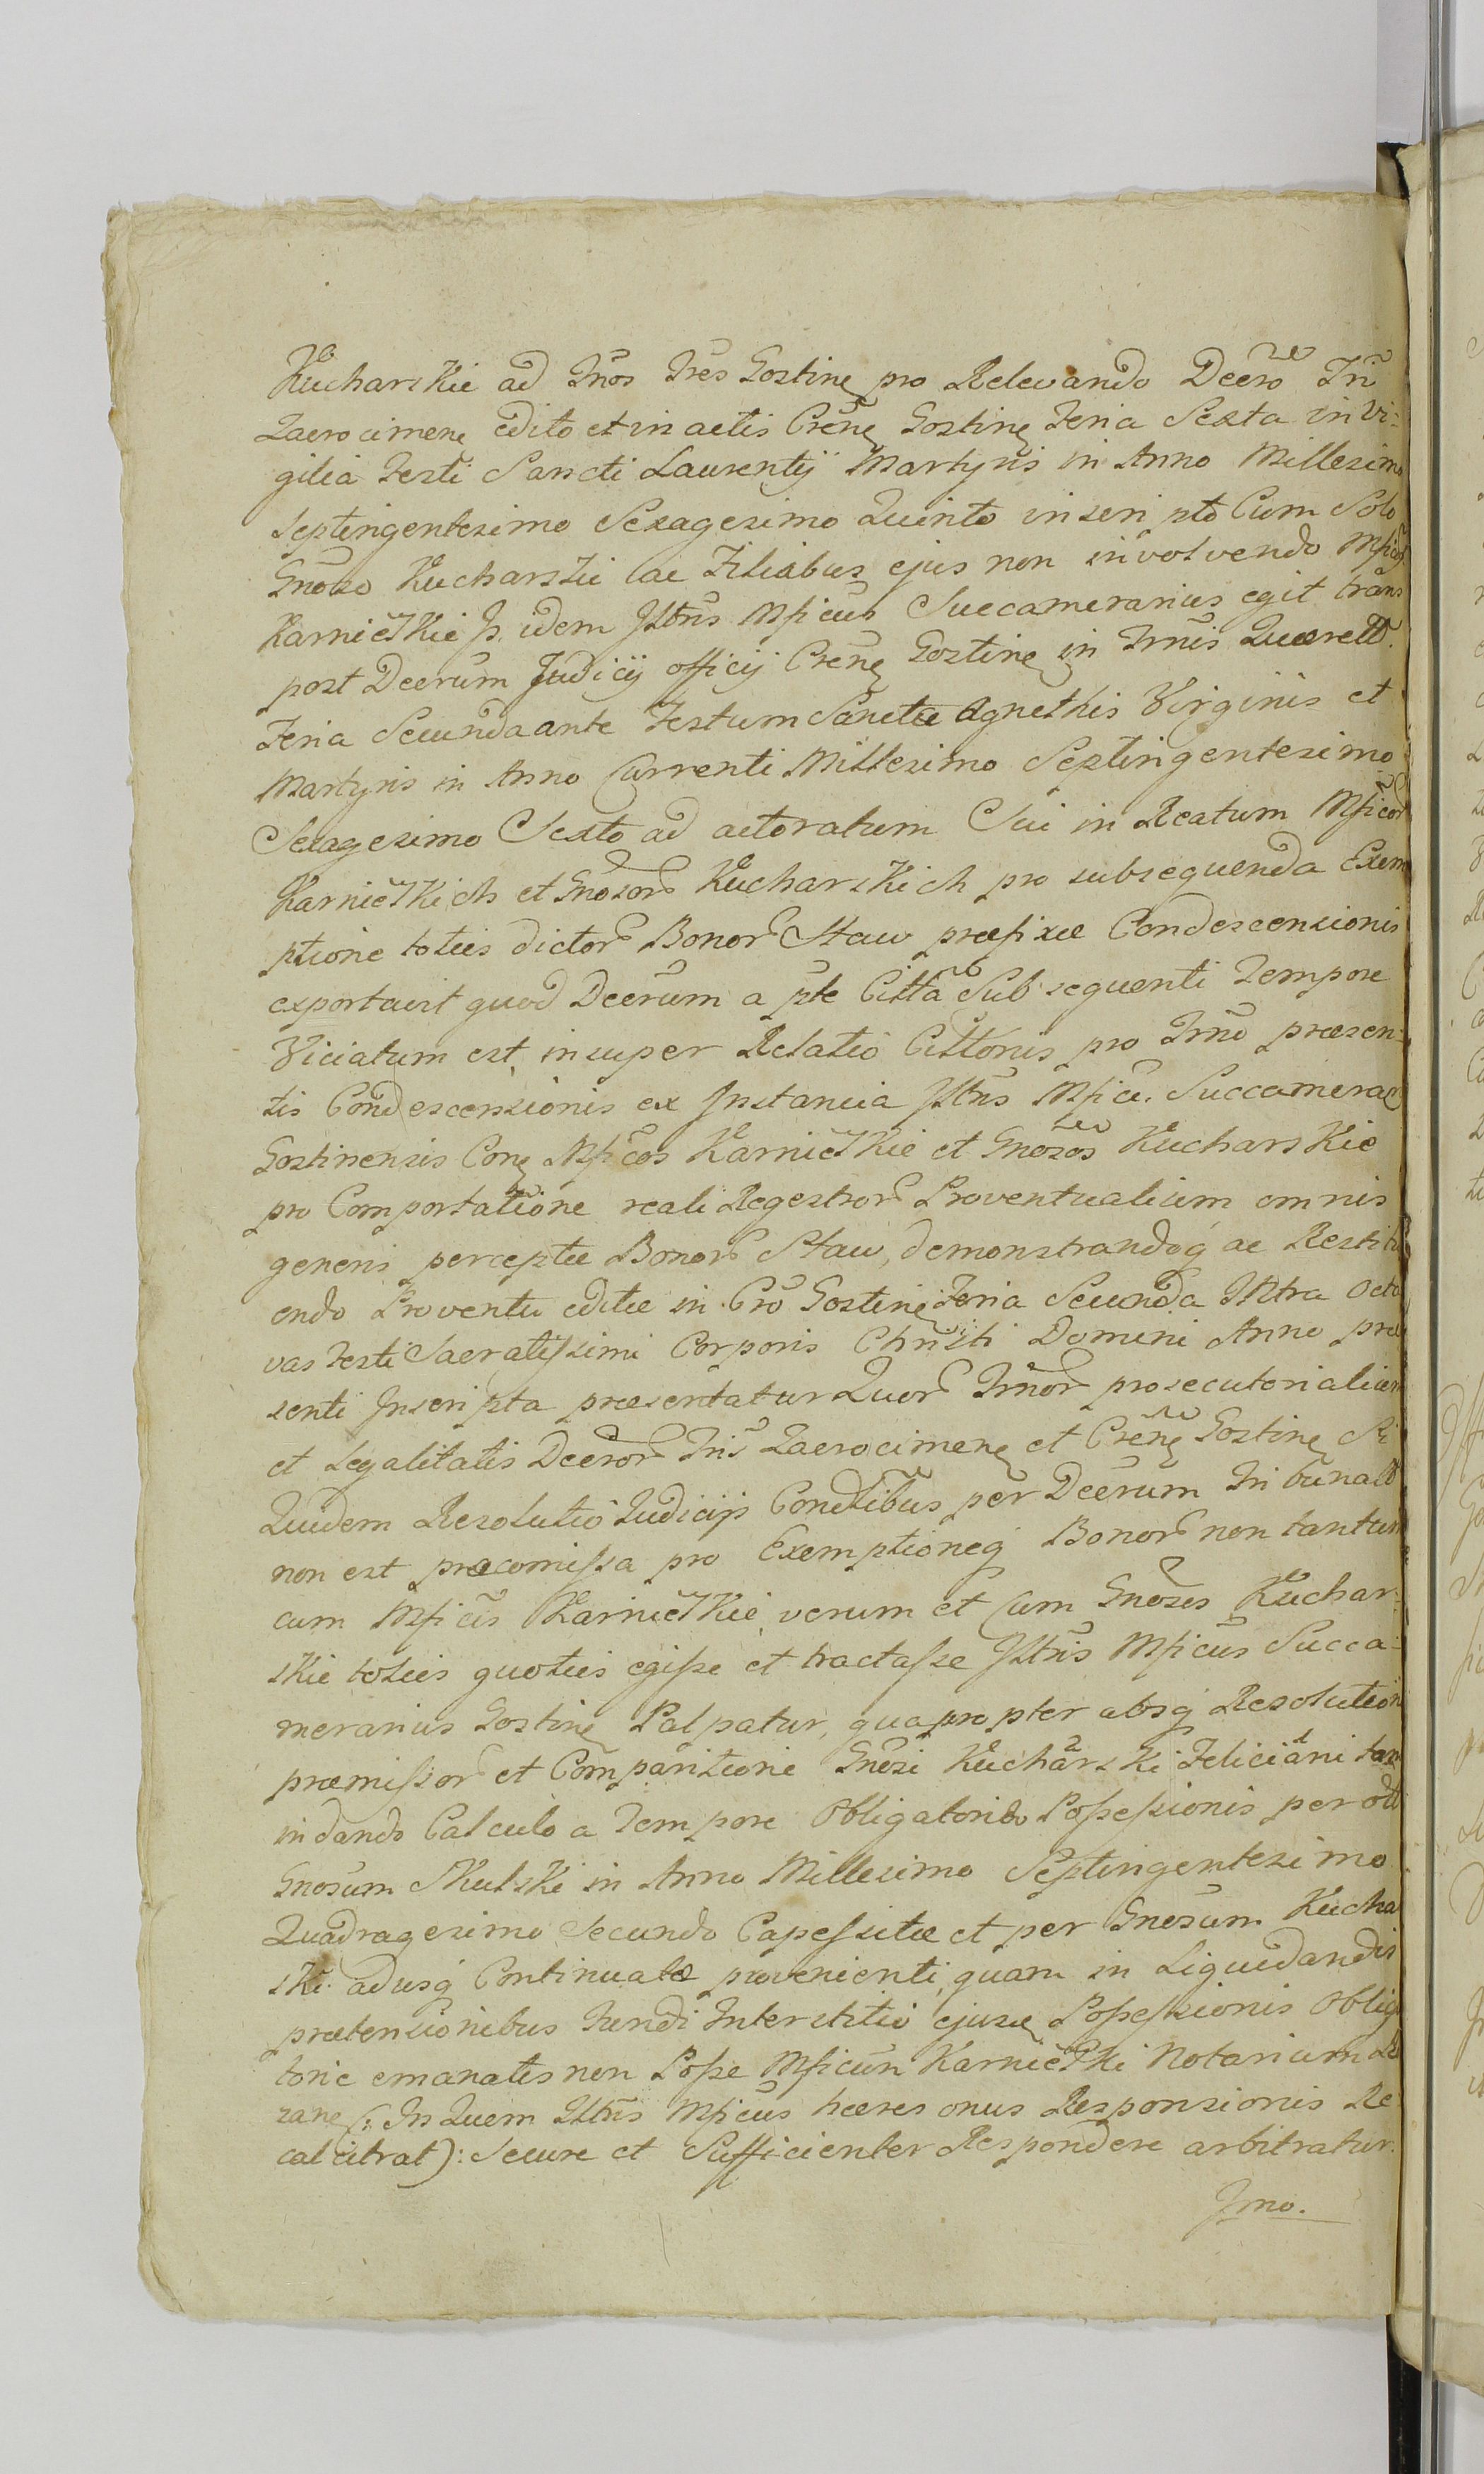 Kucharskie ad Tnos Tres Gostinę pro Relevando Decro Trii
Zaerocimenę edito et in actis Crenę Gostinę Feria Sexta in Vi-
gilia Festi Sancti Laurentij Martyris in Anno Millesimo
Septingentesimo Sexagesimo Quinto inscripto Cum Solo
Gnoso Kucharski ac Filiabus ejus non involvendo Mficos
Karnickie Is. idem Iltris Mficus Succamerarius egit trans
post Decrum Judicij officij Crenę Gostinę in Trnis Querell.
Feria Secunda ante Festum Sanctæ Agnethis Virginis et
Martyris in Anno Currenti Millesimo Septingentesimo
Sexagesimo Sexto ad actoratum Sui in Reatum Mficor
Karnickich et Gnosor Kucharskich pro subsequenda Exem
ptione toties dictor Bonor Staw præfixæ Condescensionis
exportavit quod Decrum a pte Citta Subsequenti Tempore
Viciatum est, insuper Relatio Cittonis pro Trno præsen-
tis Condescensionis ex Instancia Iltris Mfici. Succamerar
Gostinensis Conę Mficos Karnickie et Gnosos Kucharskie
pro Comportatione reali Regestror Proventualium omnis
generis perceptæ Bonor Staw, demonstrandoq ac Restitu
endo Proventu editæ in Cro Gostinę Feria Secunda Intra Octa
vas Festi Sacratissimi Corporis Christi Domini Anno præ
senti Inscripta præsentatur Quor Trnor prosecutorialium
et Legalitatis Decror Tris Zaerocimenę et Crenę Gostinę Si
Quidem Resolutio Judicijs Condlibus per Decrum Tribunall
non est præcomissa pro Exemptioneq Bonor non tantum
cum Mficis Karnickie, verum et Cum Gnosis Kuchar-
skie toties quoties egisse et tractasse Iltris Mficus Succa-
merarius Gostinę Palpatur, quapropter absq Resolution
præmissor et Comparitione Gnosi Kucharski Feliciani tam
in dando Calculo a Tempore Obligatorio Possessionis per olt
Gnosum Skulski in Anno Millesimo Septingentesimo
Quadragesimo Secundo Capessitæ et per Gnosum Kucha
ski adusq Continuatæ provenienti, quam in Liquidandis
prætensionibus Fundi Interstitio ejusę Possessionis Obliga
torie emanatis non Posse Mficun Karnicki Notarium Ra
zanę (: In Quem Iltris Mficus hæres onus Responsionis Re
calcitrat): Secure et Sufficienter Respondere arbitratur.
Imo.